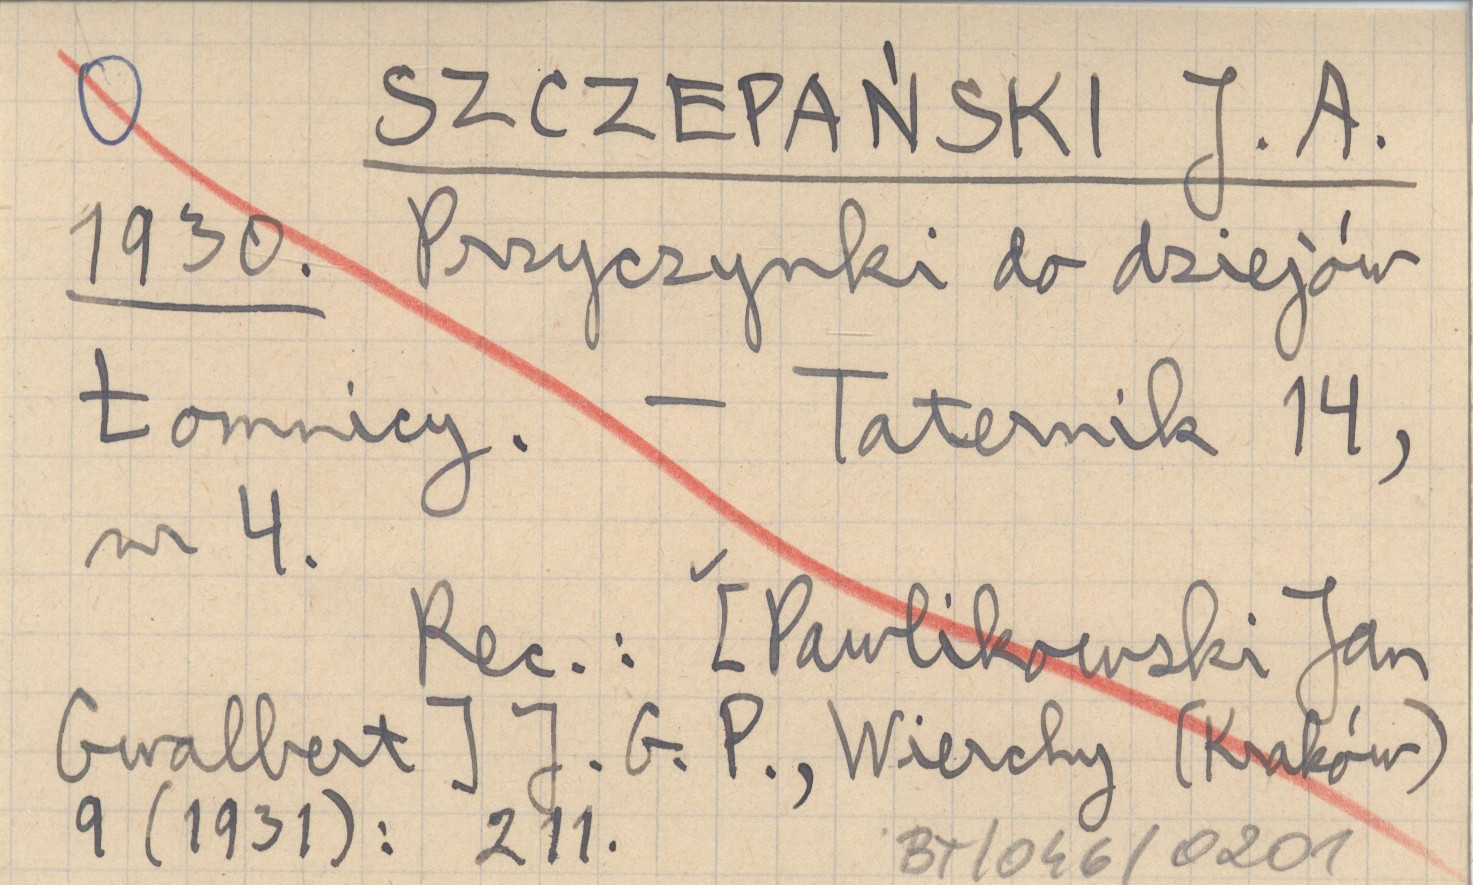 SZCZEPAŃSKI J. A.
1930. Przyczynki do dziejów
Łomnicy. — Taternik 14,
nr 4.
Rec.: [Pawlikowski Jan
Gwalbert] J. G. P., Wierchy (Kraków)
9 (1931): 211.
BT/046/0201